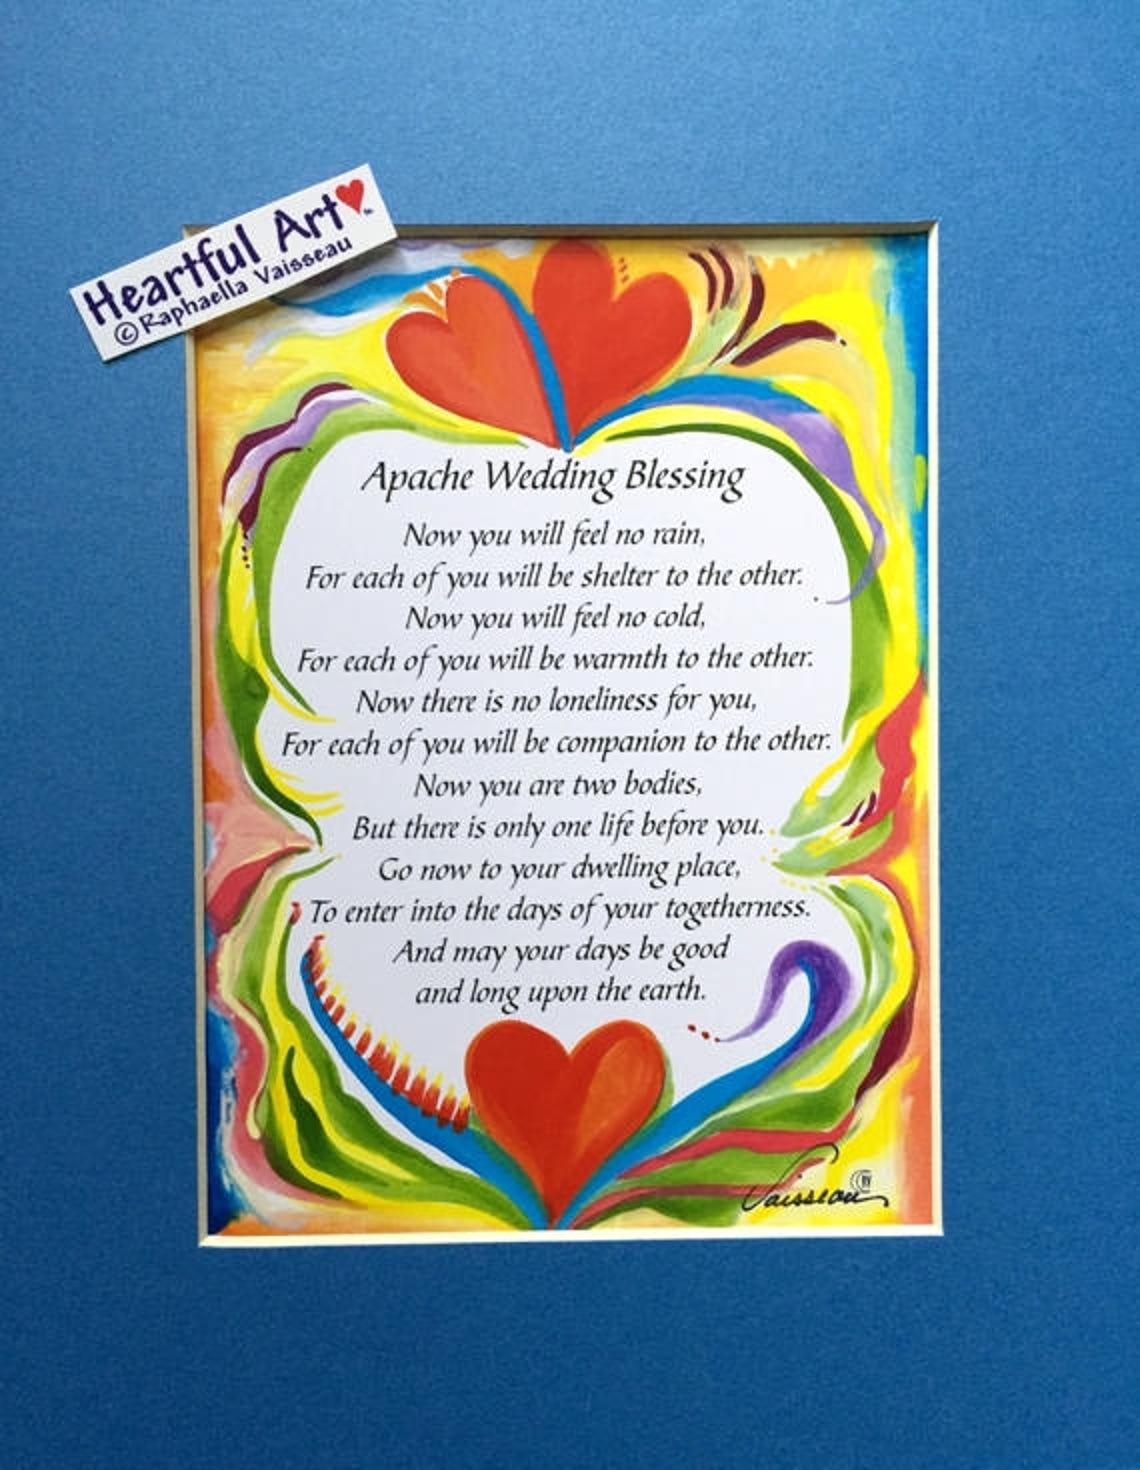 Heartful Art
© Raphaella Vaisseau
Apache Wedding Blessing
Now you will feel no rain,
For each of you will be shelter to the other.
Now you will feel no cold,
For each of you will be warmth to the other.
Now there is no loneliness for you,
For each of you will be companion to the other.
Now you are two bodies,
But there is only one life before you.
Go now to your dwelling place,
To enter into the days of your togetherness.
And may your days be good
and long upon the earth.
Vaisseau